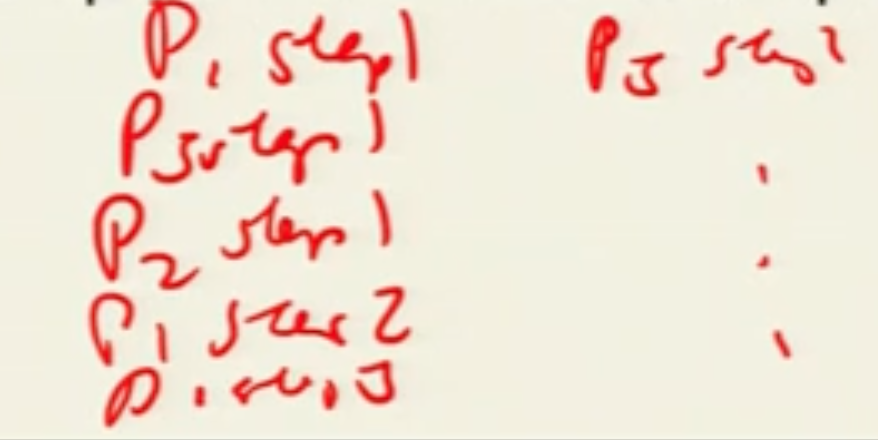 P1 step 1
P3 step 1
P2 step 1
P1 step 2
P1 step 3
P3 step 2